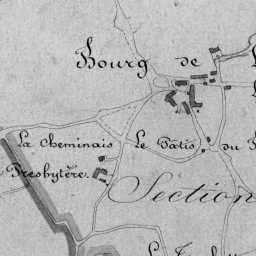 Bourg de
La Cheminais Le Pâtis du
Presbytère.
Section